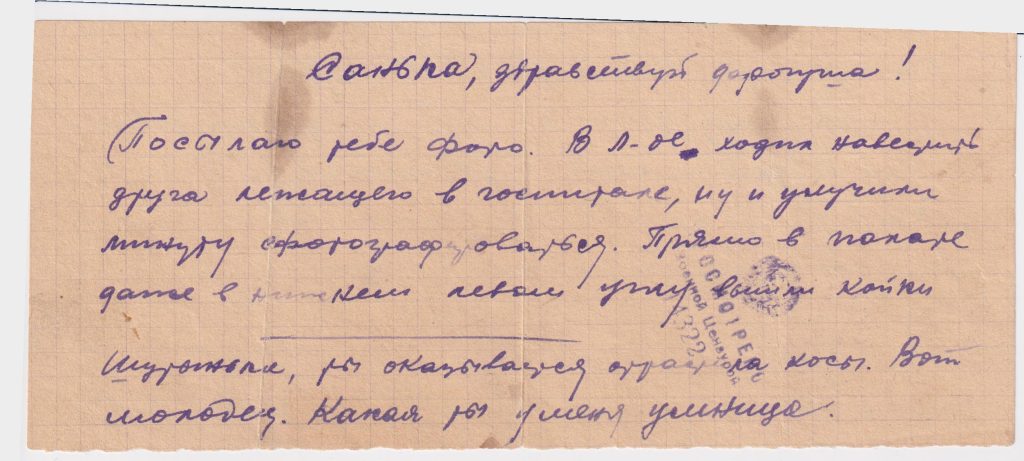 Санька, здравствуй дорогуша!
Посылаю тебе фото. В Л-де ходил навестить
друга лежащего в госпитале, ну и улучили
минуту сфотографироваться. Прямо в палате
даже в нижнем левом углу вышли койки
Шутонька, ты оказывается отрастила косы. Вот
молодец. Какая ты у меня умница.
ПРОСМОТРЕНО
Военной Цензурой
1322